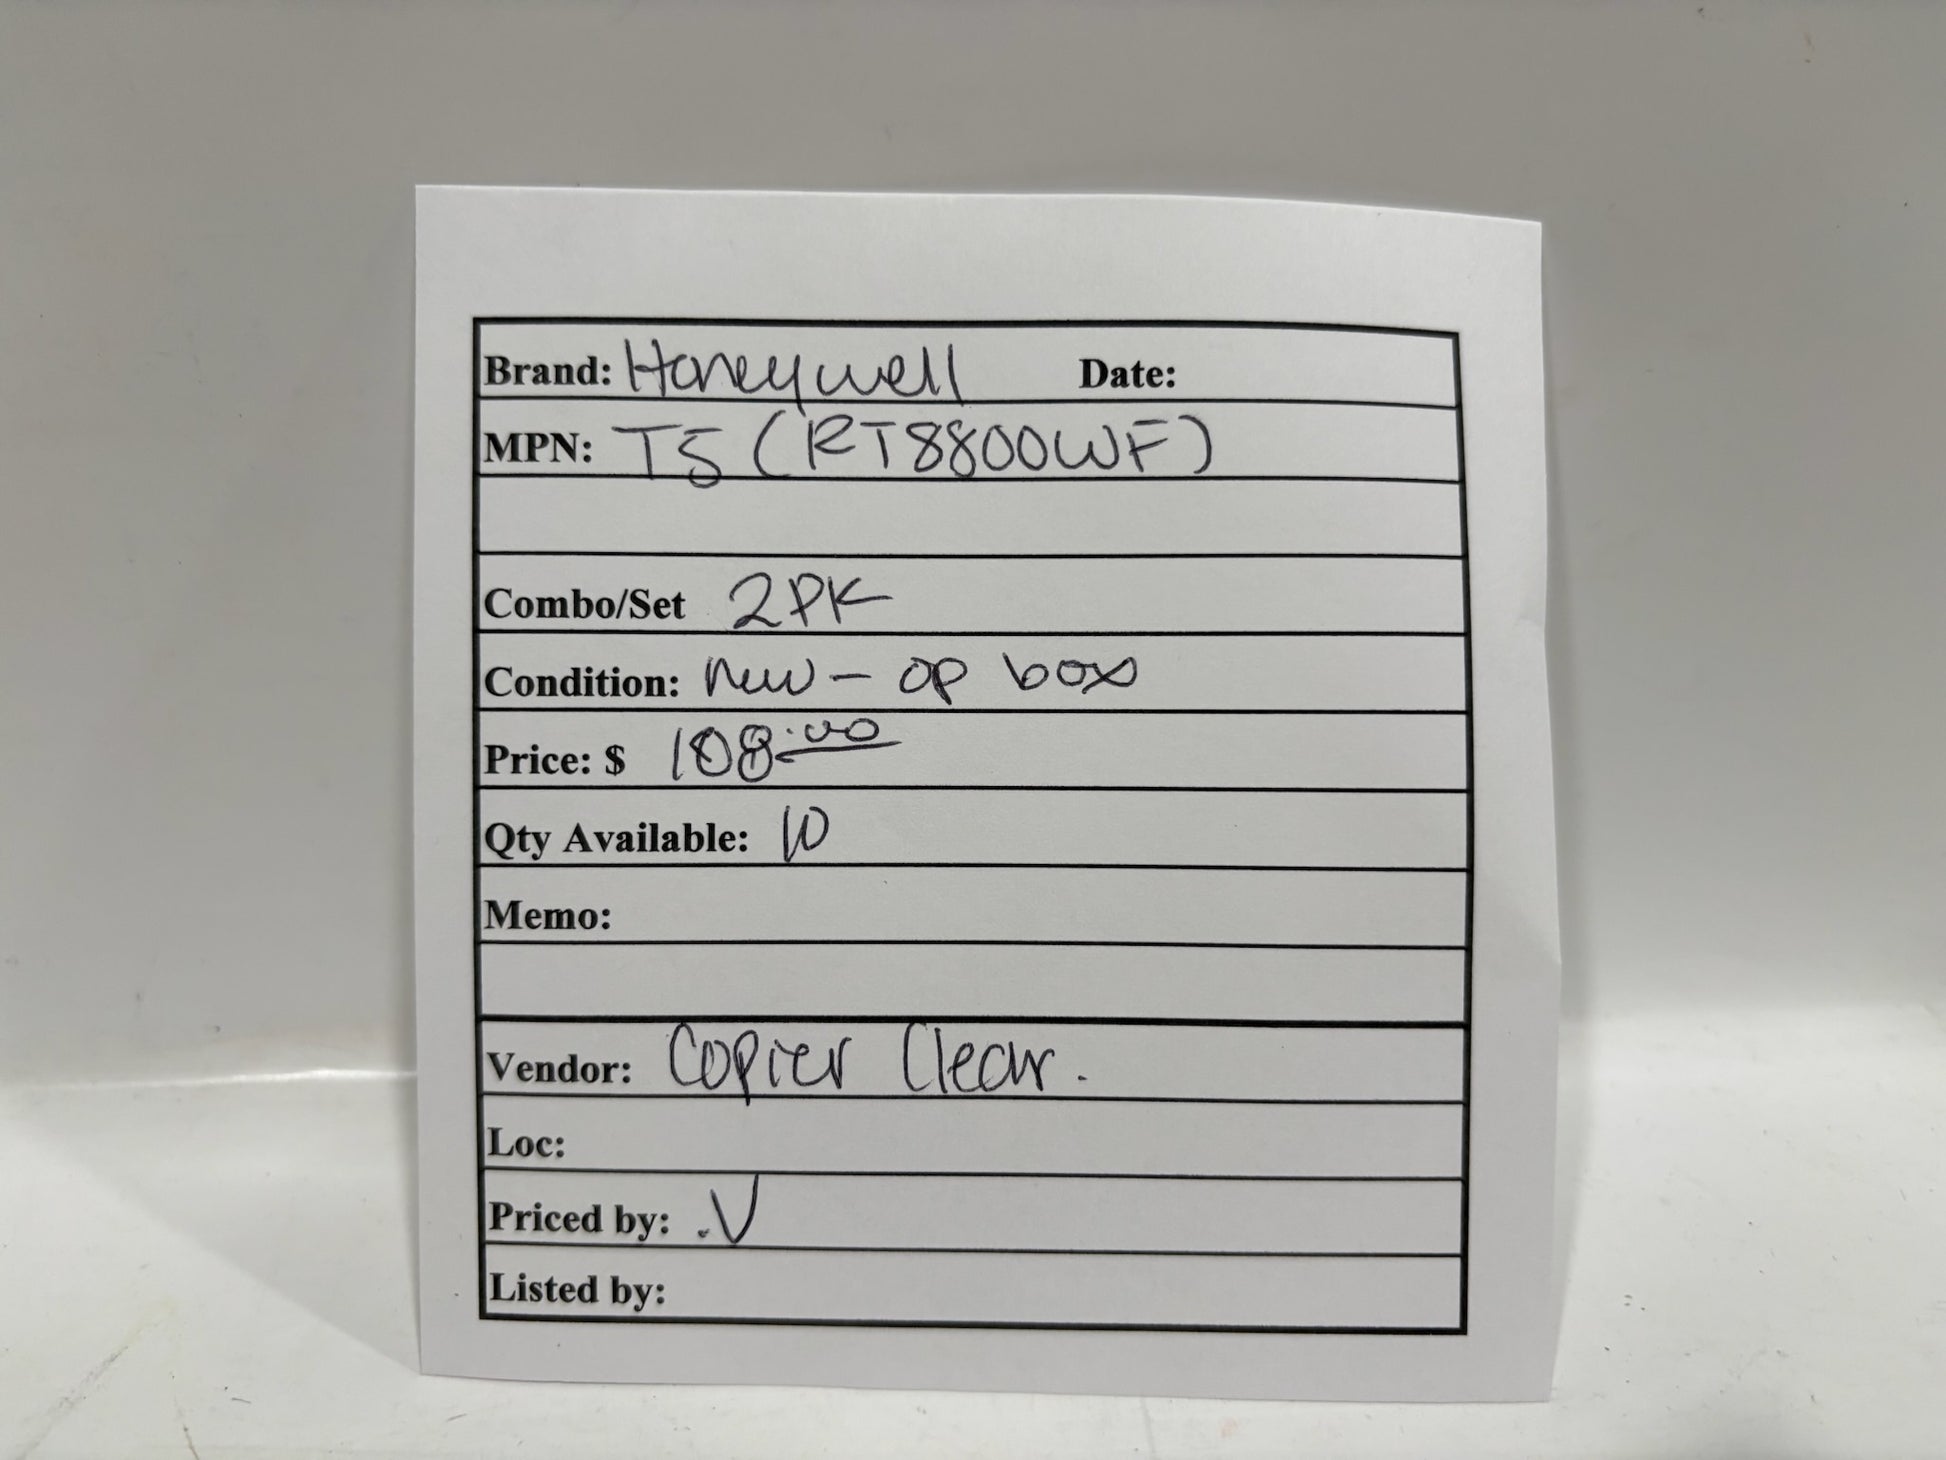 Brand: Honeywell Date:
MPN: T5 (RT8800WF)
Combo/Set 2PK
Condition: new - op box
Price: $ 108.00
Qty Available: 10
Memo:
Vendor: Copier Clear.
Loc:
Priced by: .V
Listed by: